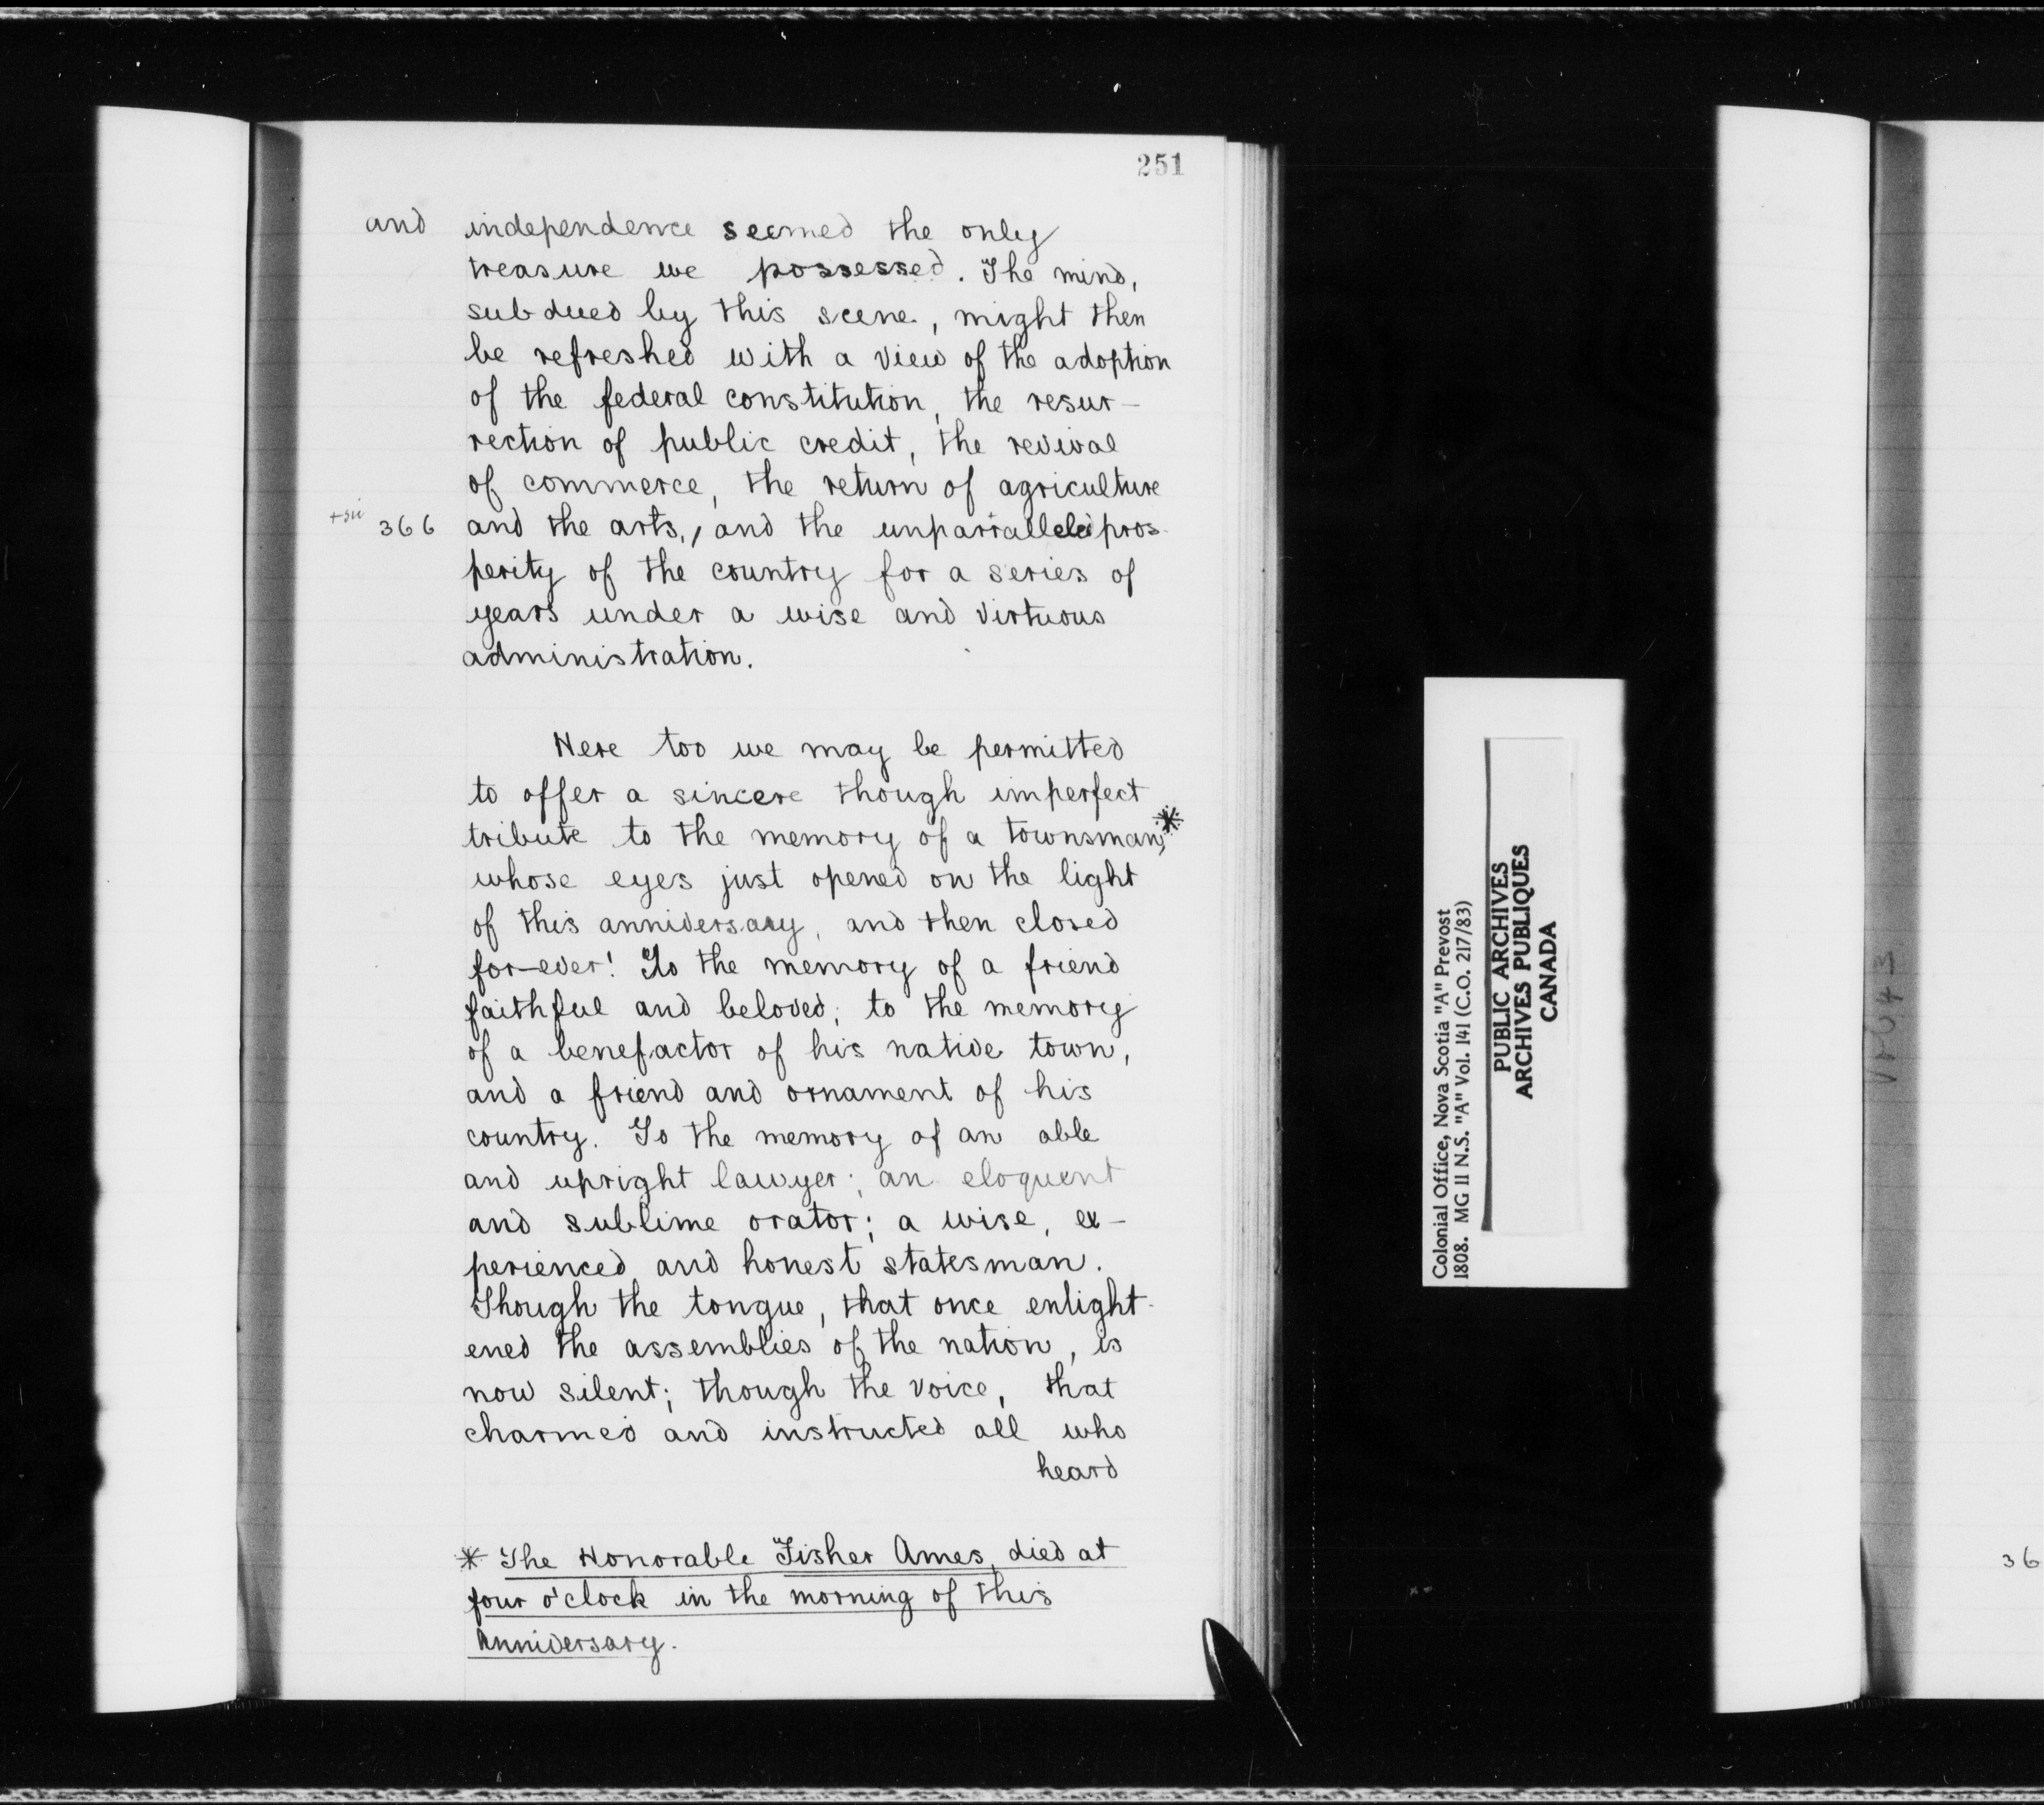 251
and independence seemed the only
treasure we possessed. The mind,
subdued by this scene, might then
be refreshed with a view of the adoption
of the federal constitution, the resur-
rection of public credit, the revival
of commerce, the return of agriculture
+sic 366 and the arts, / and the unparralleled pros-
perity of the country for a series of
years under a wise and virtuous
administration.
Here too we may be permitted
to offer a sincere though imperfect
tribute to the memory of a townsman,*
whose eyes just opened on the light
of this anniversary, and then closed
for-ever! To the memory of a friend
faithful and beloved; to the memory
of a benefactor of his native town,
and a friend and ornament of his
country. To the memory of an able
and upright lawyer; an eloquent
and sublime orator; a wise, ex-
perienced and honest statesman.
Though the tongue, that once enlight-
ened the assemblies of the nation, is
now silent; though the voice, that
charmed and instructed all who
heard
* The Honorable Fisher Ames, died at
four o'clock in the morning of this
Anniversary.
Colonial Office, Nova Scotia "A" Prevost
1808. MG 11 N.S. "A" Vol. 141 (C.O. 217/83)
PUBLIC ARCHIVES
ARCHIVES PUBLIQUES
CANADA
36